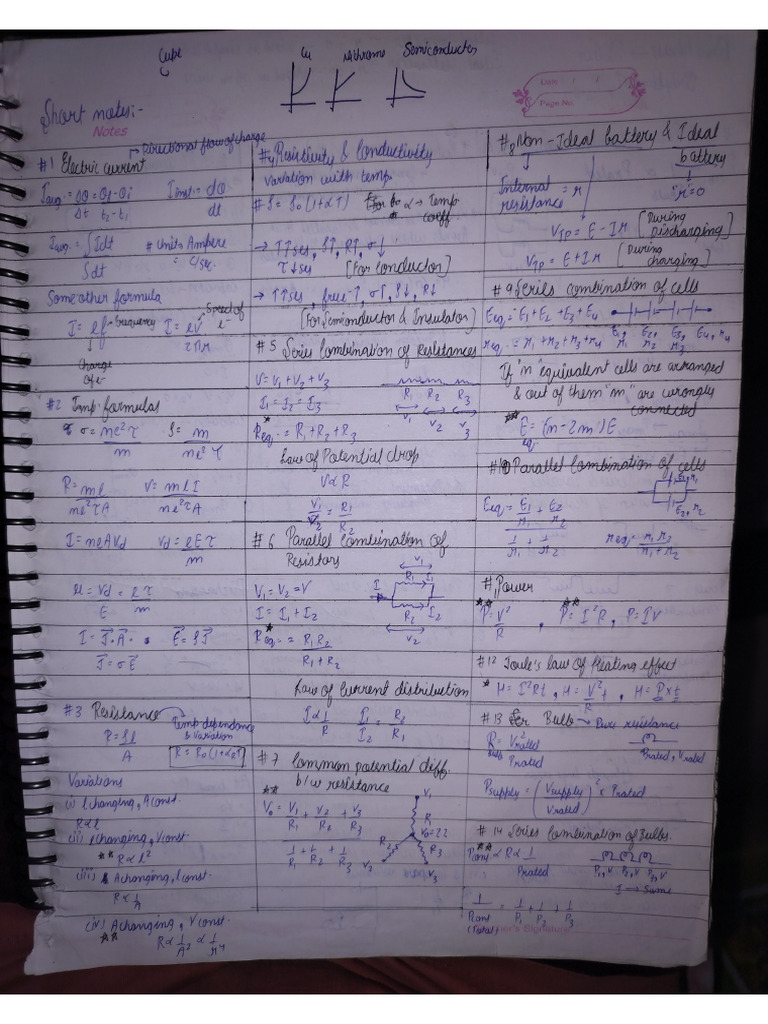 Cu
Nichrome
Semiconductor
Short notes:-
Notes
Date : / /
Page No.
#1 Electric current → Directional flow of charge
Iavg. = ΔQ/Δt = Qf-Qi/t2-t1 Iinst. = dQ/dt
Iavg. = ∫Idt/∫dt # Unit = Ampere = C/sec.
Some other formula
I = ef → frequency I = ev/2πr → Speed of e-
↓ Charge of e-
#2 Imp. formulas
σ = ne²τ/m ρ = m/ne²τ
R = ml/ne²τA V = mlI/ne²τA
I = neAVd Vd = eEτ/m
μ = Vd/E = eτ/m
I = J⃗.A⃗ E⃗ = ρJ⃗
J⃗ = σE⃗
#3 Resistance → Temp dependance & Variation
R = ρl/A R = R0(1+αRT)
Variations
(i) l changing, A const.
R ∝ l
(ii) l changing, V const.
** R ∝ l²
(iii) A changing, l const.
R ∝ 1/A
(iv) A changing, V const.
** R ∝ 1/A² ∝ 1/r⁴
#4 Resistivity & Conductivity
variation with temp.
# ρ = ρ0(1+αT) α → Temp coeff
→ T↑ses, ρ↑, R↑, σ↓
T↓ses [For conductor]
→ T↑ses, free e-↑, σ↑, ρ↓, R↓
[For Semiconductor & Insulator]
#5 Series Combination of Resistances
V = V1+V2+V3
R1 R2 R3
I1 = I2 = I3
V1 V2 V3
* Req. = R1+R2+R3
Law of Potential drop
V ∝ R
V1/V2 = R1/R2
#6 Parallel combination of
Resistors
V1 = V2 = V
I = I1 + I2
V1
R1 I1
I
R2 I2
V2
* Req. = R1R2/R1+R2
Law of current distribution
I ∝ 1/R I1/I2 = R2/R1
#7 Common potential diff.
b/w resistance
** V0 = V1/R1 + V2/R2 + V3/R3
1/R1 + 1/R2 + 1/R3
V1
R1
V0=??
R2 R3
V2 V3
#8 Non-Ideal battery & Ideal
battery
Internal resistance = r
"r"=0
VTP = E - Ir [During discharging]
VTP = E + Ir [During charging]
#9 Series combination of cells
Eeq. = E1+E2+E3+E4
req. = r1+r2+r3+r4
E1, r1 E2, r2 E3, r3 E4, r4
If "n" equivalent cells are arranged
& out of them "m" are wrongly
connected
** Eeq = (n-2m)E
#10 Parallel Combination of cells
E1, r1
E2, r2
Eeq = E1/r1 + E2/r2
1/r1 + 1/r2
req. = r1r2/r1+r2
#11 Power
** P = V²/R , ** P = I²R , P = IV
#12 Joule's law of Heating effect
* H = I²Rt , H = V²/R t , H = P×t
#13 For Bulb → Pure resistance
Rbulb = V²rated/Prated
Prated, Vrated
Psupply = (Vsupply/Vrated)² × Prated
#14 Series Combination of Bulbs.
** Pcont ∝ R ∝ 1/Prated
P1,V P2,V P3,V
I → Same
1/Pcont (Total) = 1/P1 + 1/P2 + 1/P3
er's Signature